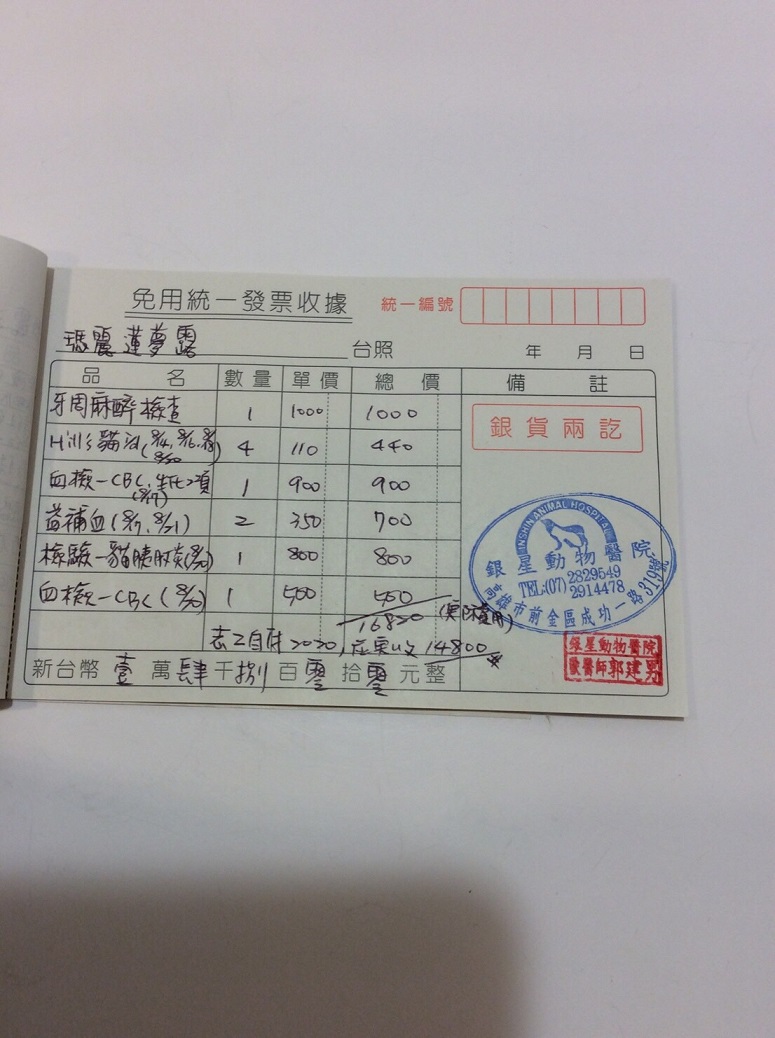 免用統一發票收據
統一編號
瑪麗蓮夢露 台照 年 月 日
品名 數量 單價 總價 備註
牙周麻醉檢查 1 1000 1000
Hill's 貓 (8/14, 8/16, 8/20) 4 110 440
血檢-CBC, 生化2項 (8/17) 1 900 900
益補血(8/17, 8/21) 2 350 700
檢驗-貓胰臟炎(8/20) 1 800 800
血檢-CBC (8/20) 1 500 500
16820 (實際費用)
志工自付 2020, 應東收 14800
新台幣 壹 萬 肆 千 捌 百 零 拾 零 元整
銀貨兩訖
INSHIN ANIMAL HOSPITAL
銀星動物醫院
TEL:(07) 2829549
2914478
高雄市前金區成功一路319號
銀星動物醫院
獸醫師郭建男